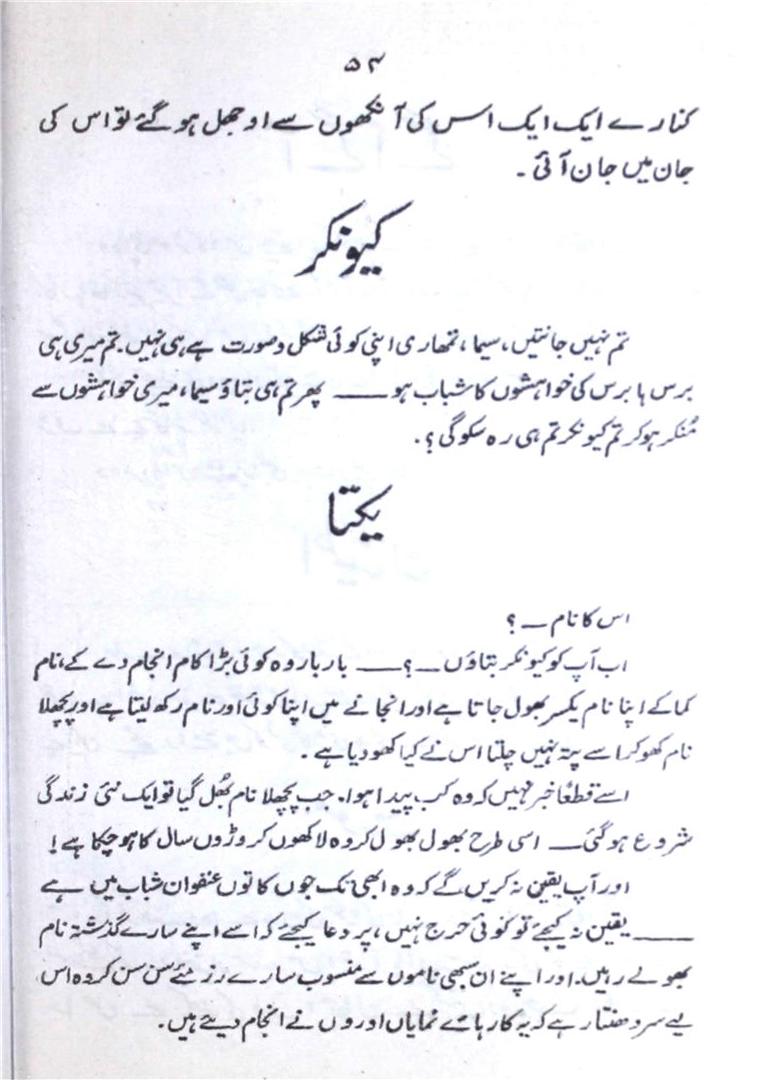 ۵۴
کنارے ایک ایک اس کی آنکھوں سے اوجھل ہو گئے تو اس کی
جان میں جان آئی ۔
کیونکر
تم نہیں جانتیں، سیما، تمھاری اپنی کوئی شکل و صورت ہے ہی نہیں۔ تم میری ہی
برس ہا برس کی خواہشوں کا شباب ہو —— پھر تم ہی بتاؤ سیما، میری خواہشوں سے
مُنکر ہو کر تم کیونکر تم ہی رہ سکو گی؟۔
یکتا
اس کا نام — ؟
اب آپ کو کیونکر بتاؤں — ؟ —— بار بار وہ کوئی بڑا کام انجام دے کے، نام
کما کے اپنا نام یکسر بھول جاتا ہے اور انجانے میں اپنا کوئی اور نام رکھ لیتا ہے اور پچھلا
نام کھو کر اسے پتہ نہیں چلتا اس نے کیا کھو دیا ہے ۔
اسے قطعاً خبر نہیں کہ وہ کب پیدا ہوا۔ جب پچھلا نام بھُل گیا تو ایک نئی زندگی
شروع ہو گئی — اسی طرح بھول بھول کر وہ لاکھوں کروڑوں سال کا ہو چکا ہے!
اور آپ یقین نہ کریں گے کہ وہ ابھی تک جوں کا توں عنفوان شباب میں ہے
—— یقین نہ کیجئے تو کوئی حرج نہیں، پر دعا کیجئے کہ اسے اپنے سارے گذشتہ نام
بھولے رہیں۔ اور اپنے ان سبھی ناموں سے منسوب سارے رزمئے سن سن کر وہ اس
لیے سر دھنتا رہے کہ یہ کارہائے نمایاں اوروں نے انجام دیئے ہیں۔